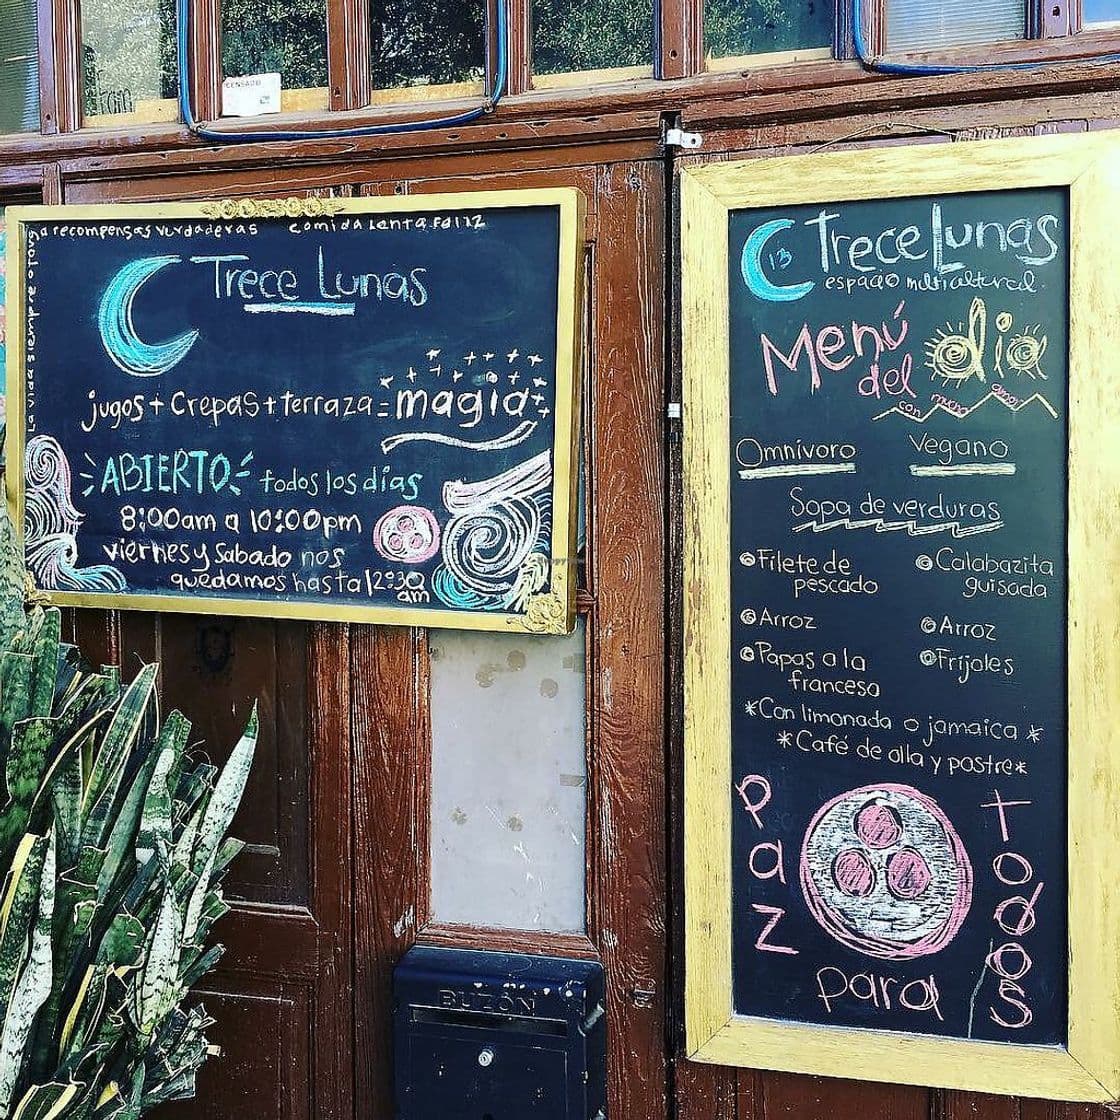 CENSADO
La vida siempre otorga recompensas verdaderas
comida lenta feliz
Trece Lunas
jugos + Crepas + terraza = magia
ABIERTO todos los días
8:00am a 10:00pm
viernes y sabado nos
quedamos hasta 12:30
am
13 Trece Lunas
espacio multicultural
Menú
del día
con mucho amor
Omnívoro Vegano
Sopa de verduras
Filete de
pescado
Calabazita
guisada
Arroz
Arroz
Papas a la
francesa
Frijoles
*Con limonada o jamaica*
*Café de olla y postre*
Paz
para
todos
BUZÓN